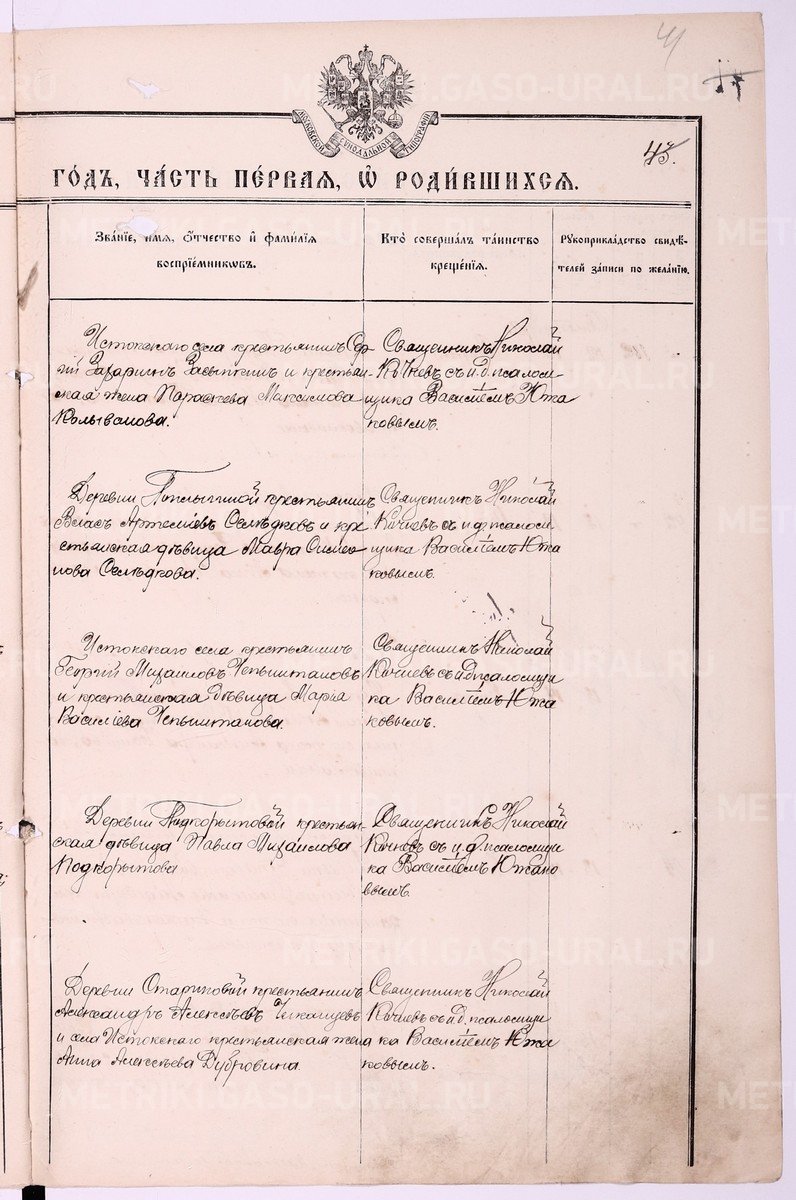 43.
МОСКОВСКОЙ СѴНОДАЛЬНОЙ ТИПОГРАФІИ
ГО́ДЪ, ЧА́СТЬ ПЕ́РВАЯ, Ѡ҆ РОДИ́ВШИХСЯ.
Зва́нїе, и҆мя, ѻ҆́тчество и҆ фами́лїя
воспрїе́мникѡвъ.
Кто̀ соверша́лъ та́инство
креще́нїя.
Рꙋкоприкла́дство свидѣ́-
телей за́писи по жела́нїю.
Истокскаго села крестьянинъ Сер-
гій Захаринъ Засыпкинъ и крестьян-
ская жена Параскева Максимова
Колыванова.
Священникъ Николай
Кочневъ съ и. д. псалом-
щика Василіемъ Южа
ковымъ.
Деревни крестьянинъ
Власъ Артеміевъ Селѣдковъ и кре
стьянская дѣвица Мавра Симео
нова Селѣдкова.
Священникъ Николай
Кочневъ съ и. д. псалом
щика Василіемъ Южа
ковымъ.
Истокскаго села крестьянинъ
Георгій Михаиловъ Чепыштановъ
и крестьянская дѣвица Марія
Василіева Чепыштанова.
Священникъ Николай
Кочневъ съ и. д. псаломщи
ка Василіемъ Южа
ковымъ.
Деревни Подкорытовой крестьян
ская дѣвица Павла Михаилова
Подкорытова
Священникъ Николай
Кочневъ съ и. д. псаломщи
ка Василіемъ Южако
вымъ.
Деревни Стариковой крестьянинъ
Александръ Алексѣевъ
и села Истокскаго крестьянская жена
Анна Алексѣева Дубровина.
Священникъ Николай
Кочневъ съ и. д. псаломщи
ка Василіемъ Южа
ковымъ.
METRIKI.GASO-URAL.RU